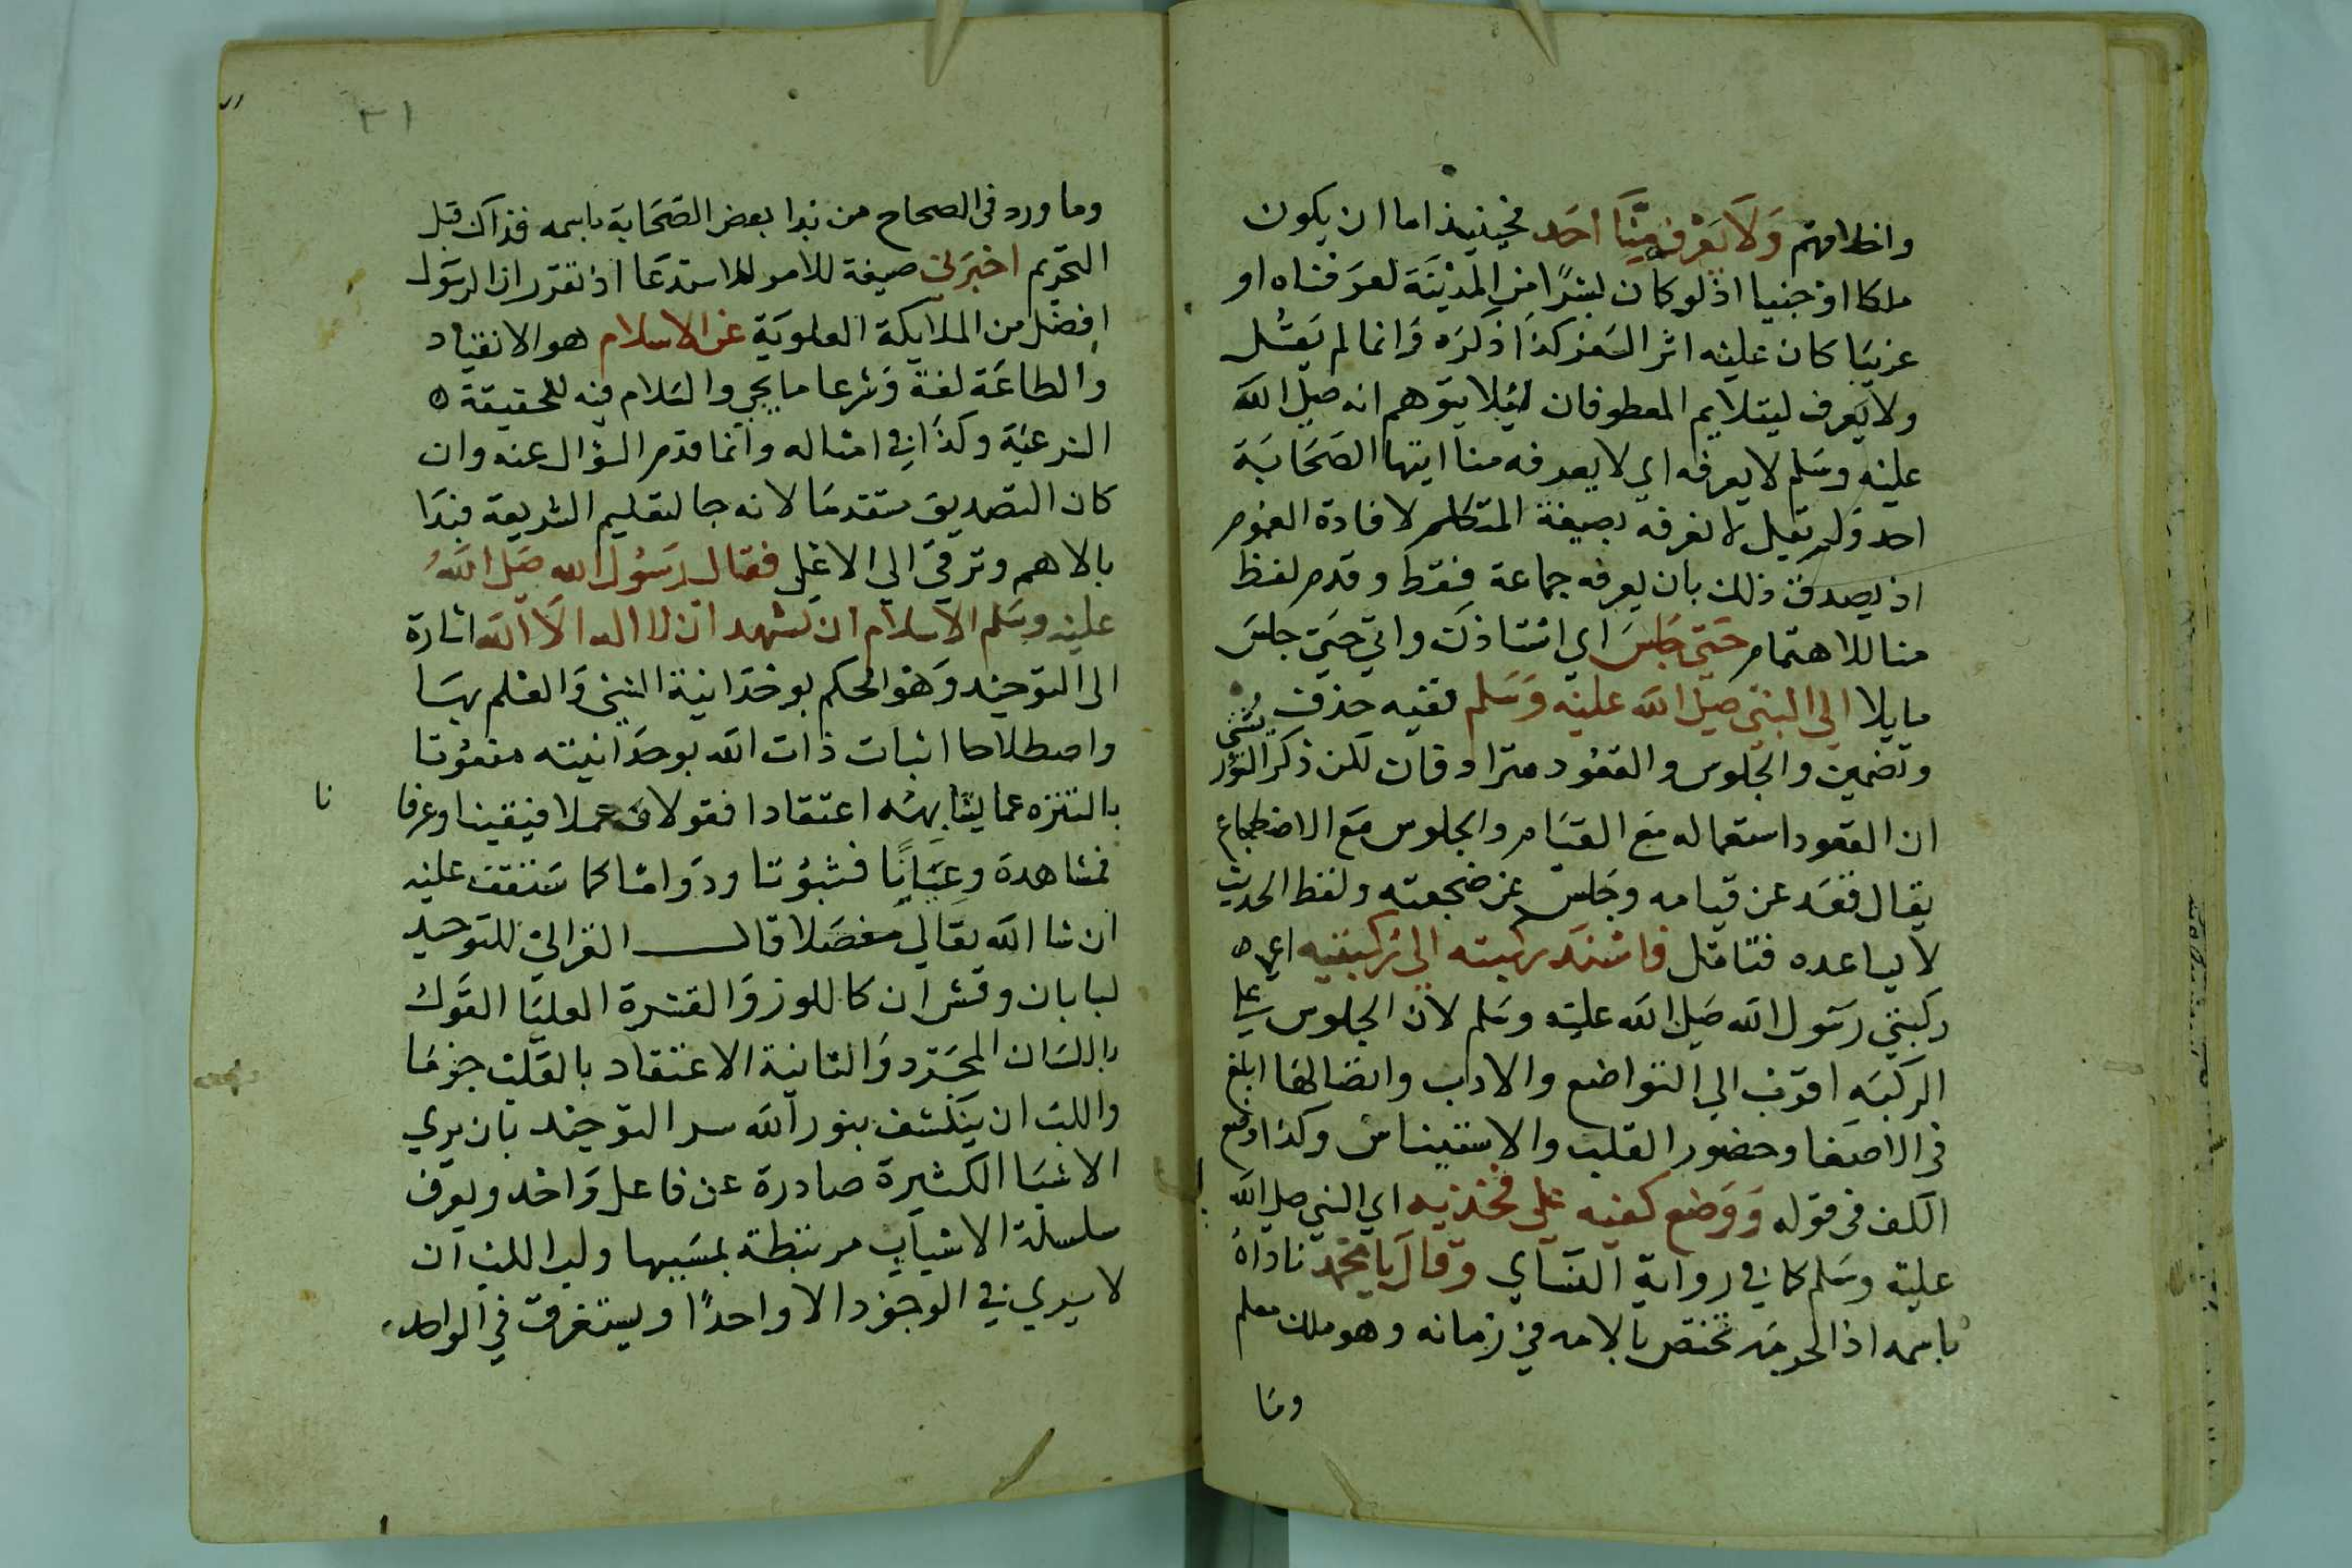 واخلاقهم وَلَا يَعْرِفُه مِنَّا أحَد فحينيذ اما ان يكون
ملكا او جنيا اذ لو كان بشرًا من المدينَة لعرَفناه او
غريبَا كان عليْه اثر السَفر كذا ذكرَه وَانما لم يَقُل
ولا يَعرف ليتلايم المعطوفان ليُلا يتوهم انه صلى الله
عليْه وسَلم لا يعرفه اي لا يعرفه منا ايتها الصَحَابَة
احد وَلم يقل لا نعرفه بصيغة المتكلم لافادة العموم
اذ يصدق ذلك بان يعرفه جماعة فقط وقدم لفظ
منا للاهتمام حَتى جَلسَ اي استاذن واتى حتى جلسَ
مايلا الى النبي صلى الله عليْه وَسَلم ففيه حذف
وتضمين والجلوس والقعُود مترادفان لكن ذكر التوُر
بُشتي
ان القعود استعماله مَع القيَام والجلوس مَع الاضطجاع
يقال قعَد عن قيامه وجَلسَ عن ضجعته ولفظ الحديث
لا يساعده فتامّل فاسْنَد ركبته الى ركبتيه اي
ركبتي رسَول الله صَلى الله عليْه وسَلم لان الجلوس على
الركبَه اقرب الى التواضع والادب وايصالها ابلغ
في الاصغا وحضور القلب والاستيناس وكذا وضع
الكف في قوله وَوَضع كفيه على فخذيه اي النبي صلى الله
عليْه وسَلم كما في رواية النسَاي وَقالَ يا محمد ناداهُ
باسمه اذ الحرمَه تختص بالامه في زمانه وهو ملك معلم
ومَا
٣١
وما ورد في الصحاح من ندا بعض الصَحَابَة باسمه فذاك قبل
التحريم اخبَرني صيغة للامر للاستدعَا اذ تقرر ان الرسَول
افضَل من الملايكة العلويَة عَن الاسلام هو الانقياد
والطاعَة لغة وَشرعا ما يجي والسَلام فيه للحقيقة
الشرعيَة وكذا في امثاله وانما قدم السؤال عنه وان
كان التصديق متقدمَا لانه جا لتعليم الشريعة فبدَا
بالاهم وترقى الى الاعلى فقال رسُول الله صَلى اللهُ
عليْه وسَلم الاسلام ان تشهد ان لا اله الّا الله اشارة
الى التوحيْد وَهوَ الحكم بوحْدَانية الشيْ وَالعلم بهَا
واصطلاحا اثبات ذات الله بوحدَانيته منعوُتا
بالتنزه عما يشابهُه اعتقادا فقولا فعملا فيقينا وعرفا
نا
فمشاهدة وعيَانًا فثبوُتا ودَوامًا كما سَتقف عليْه
ان شا الله تعَالى مفصَلا قال الغزالي للتوحيد
لبابان وقشران كاللوز وَالقشرة العليَا القَول
باللسَان المجَرّد وَالثانية الاعتقاد بالقلب جزمَا
واللب ان ينكشف بنور الله سر التوحيْد بان يري
الاشيَا الكثيرة صادرة عن فاعل وَاحْد ويعرف
سلسلة الاسباب مرتبطة بمسَببها ولب اللب ان
لا يري في الوجوْد الا واحدًا ويستغرق في الواحد